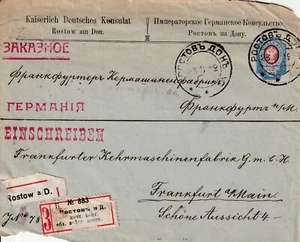 Kaiserlich Deutsches Konsulat
Rostow am Don.
Императорское Германское Консульство
Ростовъ на Дону.
ЗАКАЗНОЕ
РОСТОВЪ ДОН.
РОСТОВЪ
Франкфуртеръ Кермашиненфабрикъ
ГЕРМАНІЯ
Франкфуртъ а/М.
EINSCHREIBEN
Frankfurter Kehrmaschinenfabrik G.m.b.H.
Frankfurt a/Main
Schöne Aussicht 4
Rostow a/D.
№ 883
Ростовъ н Д.